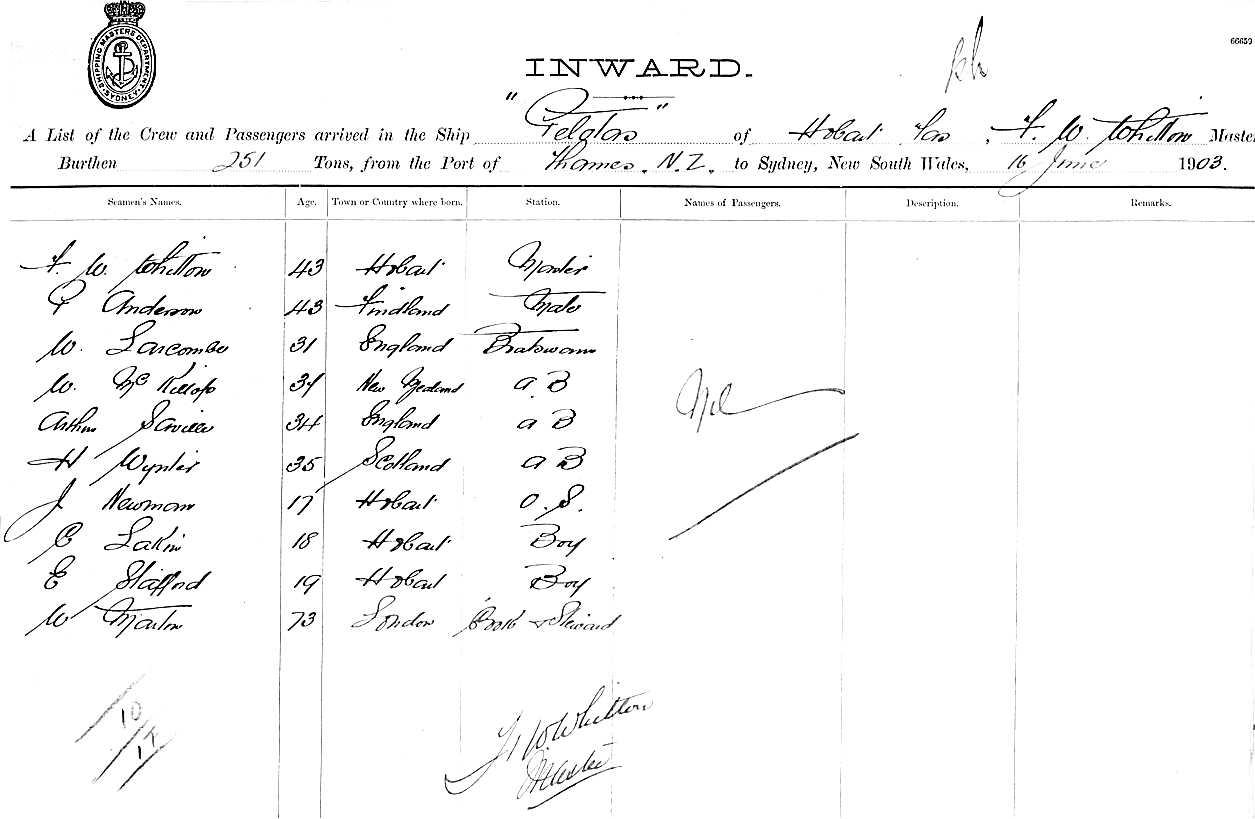 SHIPPING MASTERS DEPARTMENT SYDNEY
66659
INWARD.
A List of the Crew and Passengers arrived in the Ship " " of Hobart Tas, F. W. Whitton Master
Burthen 251 Tons, from the Port of Thames. N.Z. to Sydney, New South Wales, 16 June 1903.
Seamen's Names. Age. Town or Country where born. Station. Names of Passengers. Description. Remarks.
F. W. Whitton 43 Hobart Master
P Anderson 43 Findland Mate
W. Larcombe 31 England
W. McKillop 34 New Zealand A.B
Nil
Arthur Saville 34 England A B
H Wynter 35 Scotland A B
J Newman 17 Hobart O.S.
C Lakin 18 Hobart Boy
E Stafford 19 Hobart Boy
W Marton 73 London Cook & Steward
10
F W Whitton
Master